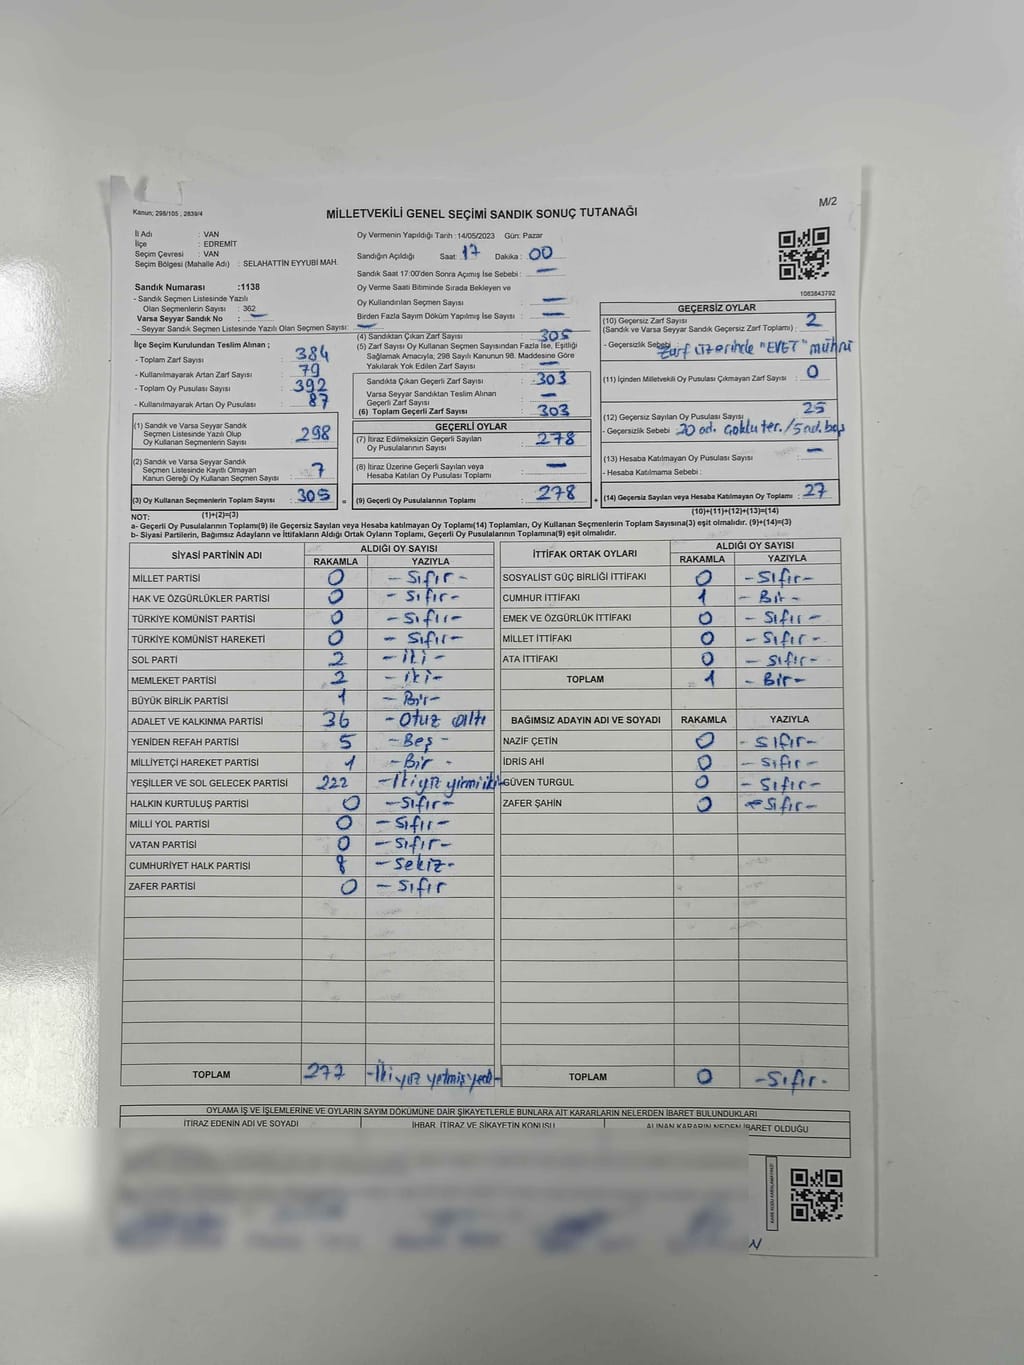 Kanun; 298/105 , 2839/4
MİLLETVEKİLİ GENEL SEÇİMİ SANDIK SONUÇ TUTANAĞI
M/2
İl Adı : VAN
İlçe : EDREMİT
Seçim Çevresi : VAN
Seçim Bölgesi (Mahalle Adı) : SELAHATTİN EYYUBİ MAH.
Sandık Numarası :1138
- Sandık Seçmen Listesinde Yazılı
Olan Seçmenlerin Sayısı : 362
Varsa Seyyar Sandık No : —
- Seyyar Sandık Seçmen Listesinde Yazılı Olan Seçmen Sayısı: —
Oy Vermenin Yapıldığı Tarih :14/05/2023 Gün: Pazar
Sandığın Açıldığı Saat: 17 Dakika : 00
Sandık Saat 17:00'den Sonra Açımış İse Sebebi : —
Oy Verme Saati Bitiminde Sırada Bekleyen ve
Oy Kullandırılan Seçmen Sayısı : —
Birden Fazla Sayım Döküm Yapılmış İse Sayısı : —
1083843792
İlçe Seçim Kurulundan Teslim Alınan ;
- Toplam Zarf Sayısı : 384
- Kullanılmayarak Artan Zarf Sayısı : 79
- Toplam Oy Pusulası Sayısı : 392
- Kullanılmayarak Artan Oy Pusulası : 87
(1) Sandık ve Varsa Seyyar Sandık
Seçmen Listesinde Yazılı Olup
Oy Kullanan Seçmenlerin Sayısı : 298
(2) Sandık ve Varsa Seyyar Sandık
Seçmen Listesinde Kayıtlı Olmayan
Kanun Gereği Oy Kullanan Seçmen Sayısı : 7
(3) Oy Kullanan Seçmenlerin Toplam Sayısı : 305 =
(1)+(2)=(3)
(4) Sandıktan Çıkan Zarf Sayısı : 305
(5) Zarf Sayısı Oy Kullanan Seçmen Sayısından Fazla İse, Eşitliği
Sağlamak Amacıyla; 298 Sayılı Kanunun 98. Maddesine Göre
Yakılarak Yok Edilen Zarf Sayısı : —
Sandıkta Çıkan Geçerli Zarf Sayısı : 303
Varsa Seyyar Sandıktan Teslim Alınan
Geçerli Zarf Sayısı : —
(6) Toplam Geçerli Zarf Sayısı : 303
GEÇERLİ OYLAR
(7) İtiraz Edilmeksizin Geçerli Sayılan
Oy Pusulalarının Sayısı : 278
(8) İtiraz Üzerine Geçerli Sayılan veya
Hesaba Katılan Oy Pusulası Toplamı : —
(9) Geçerli Oy Pusulalarının Toplamı : 278 +
GEÇERSİZ OYLAR
(10) Geçersiz Zarf Sayısı
(Sandık ve Varsa Seyyar Sandık Geçersiz Zarf Toplamı) : 2
- Geçersizlik Sebebi : Zarf üzerinde "EVET" mührü
(11) İçinden Milletvekili Oy Pusulası Çıkmayan Zarf Sayısı : 0
(12) Geçersiz Sayılan Oy Pusulası Sayısı : 25
- Geçersizlik Sebebi : 20 ad. Çoklu ter./5 ad. boş
(13) Hesaba Katılmayan Oy Pusulası Sayısı : —
- Hesaba Katılmama Sebebi :
(14) Geçersiz Sayılan veya Hesaba Katılmayan Oy Toplamı : 27
(10)+(11)+(12)+(13)=(14)
NOT:
a- Geçerli Oy Pusulalarının Toplamı(9) ile Geçersiz Sayılan veya Hesaba katılmayan Oy Toplamı(14) Toplamları, Oy Kullanan Seçmenlerin Toplam Sayısına(3) eşit olmalıdır. (9)+(14)=(3)
b- Siyasi Partilerin, Bağımsız Adayların ve İttifakların Aldığı Ortak Oyların Toplamı, Geçerli Oy Pusulalarının Toplamına(9) eşit olmalıdır.
SİYASİ PARTİNİN ADI ALDIĞI OY SAYISI
RAKAMLA YAZIYLA
MİLLET PARTİSİ 0 - Sıfır -
HAK VE ÖZGÜRLÜKLER PARTİSİ 0 - Sıfır -
TÜRKİYE KOMÜNİST PARTİSİ 0 - Sıfır -
TÜRKİYE KOMÜNİST HAREKETİ 0 - Sıfır -
SOL PARTİ 2 - İki -
MEMLEKET PARTİSİ 2 - iki -
BÜYÜK BİRLİK PARTİSİ 1 - Bir -
ADALET VE KALKINMA PARTİSİ 36 - Otuz altı
YENİDEN REFAH PARTİSİ 5 - Beş -
MİLLİYETÇİ HAREKET PARTİSİ 1 - Bir -
YEŞİLLER VE SOL GELECEK PARTİSİ 222 - İkiyüz yirmi iki -
HALKIN KURTULUŞ PARTİSİ 0 - Sıfır -
MİLLİ YOL PARTİSİ 0 - Sıfır -
VATAN PARTİSİ 0 - Sıfır -
CUMHURİYET HALK PARTİSİ 8 - Sekiz -
ZAFER PARTİSİ 0 - Sıfır
TOPLAM 277 - İkiyüz yetmiş yedi -
İTTİFAK ORTAK OYLARI ALDIĞI OY SAYISI
RAKAMLA YAZIYLA
SOSYALİST GÜÇ BİRLİĞİ İTTİFAKI 0 - Sıfır -
CUMHUR İTTİFAKI 1 - Bir -
EMEK VE ÖZGÜRLÜK İTTİFAKI 0 - Sıfır -
MİLLET İTTİFAKI 0 - Sıfır -
ATA İTTİFAKI 0 - Sıfır -
TOPLAM 1 - Bir -
BAĞIMSIZ ADAYIN ADI VE SOYADI RAKAMLA YAZIYLA
NAZİF ÇETİN 0 - Sıfır -
İDRİS AHİ 0 - Sıfır -
GÜVEN TURGUL 0 - Sıfır -
ZAFER ŞAHİN 0 - Sıfır -
TOPLAM 0 - Sıfır -
OYLAMA İŞ VE İŞLEMLERİNE VE OYLARIN SAYIM DÖKÜMÜNE DAİR ŞİKAYETLERLE BUNLARA AİT KARARLARIN NELERDEN İBARET BULUNDUKLARI
İTİRAZ EDENİN ADI VE SOYADI İHBAR, İTİRAZ VE ŞİKAYETİN KONUSU ALINAN KARARIN NEDEN İBARET OLDUĞU